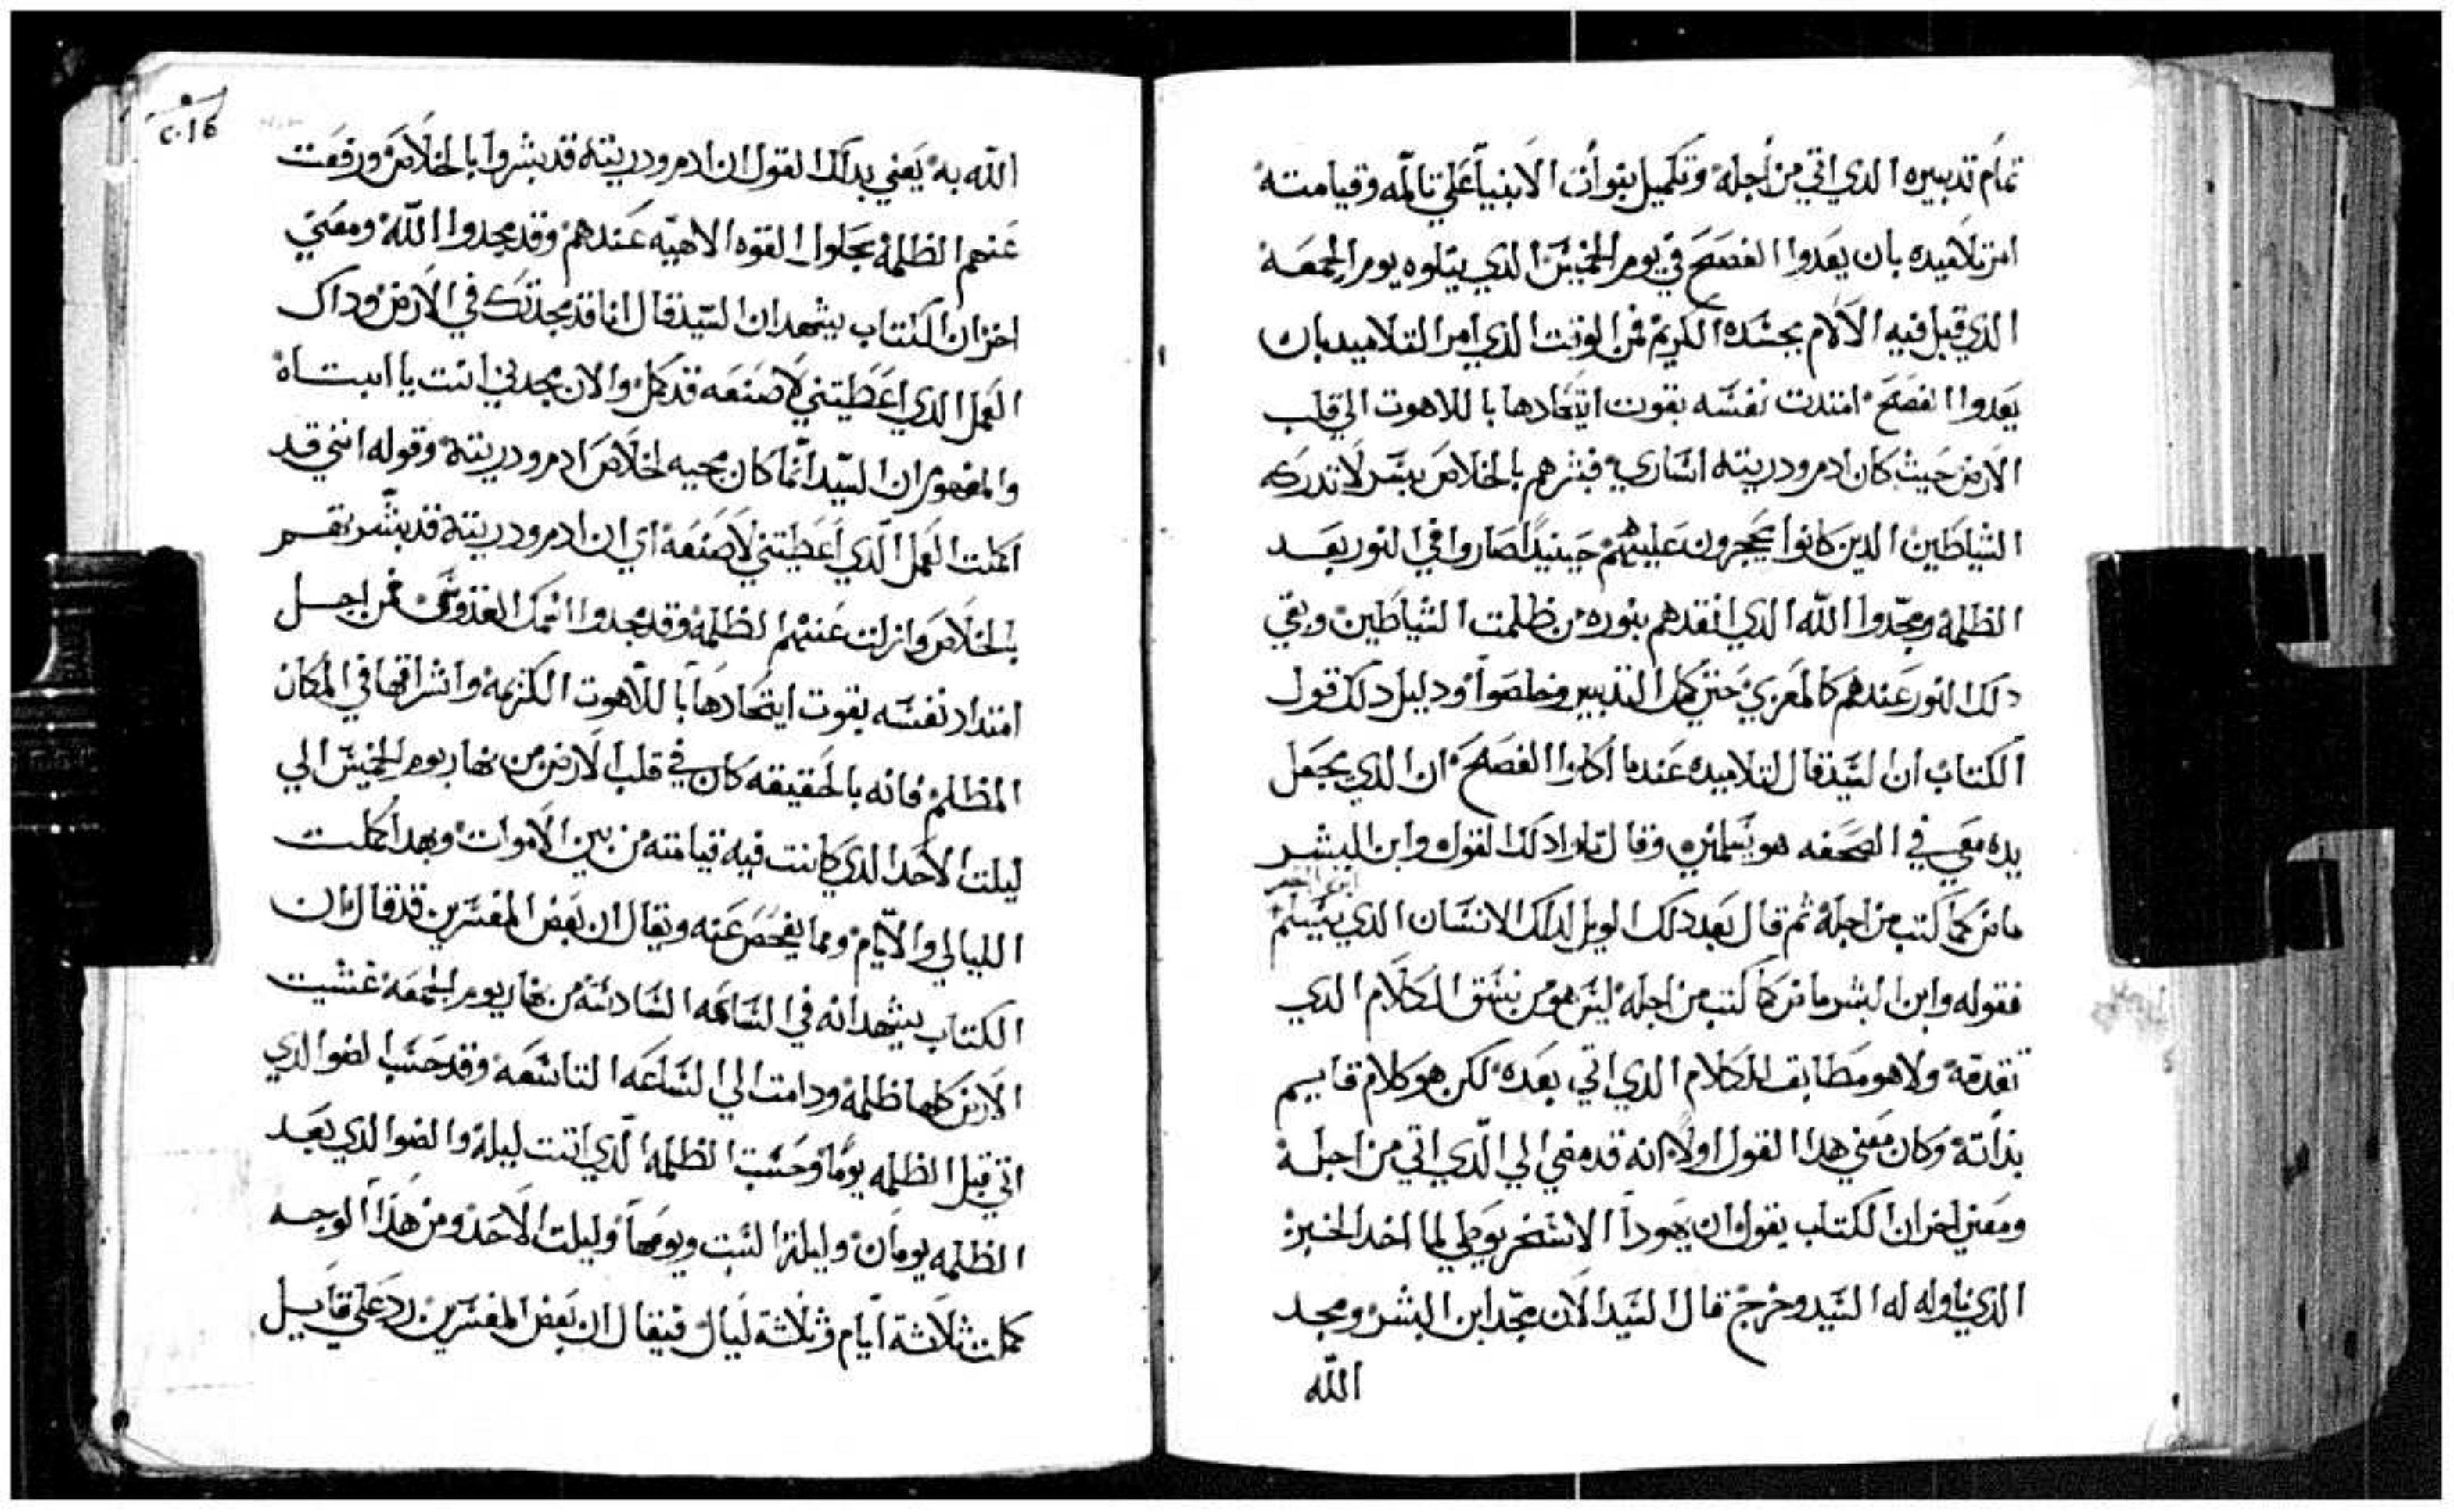 تمام تدبيره الدي اتي من اجله وتكميل نبوات الانبيا علي تالمه وقيامته
امر تلاميده بان يعدوا الفصح في يوم الخميس الدي يتلوه يوم الجمعه
الدي قبل فيه الالام بجسده الكريم فمن الوقت الدي امر التلاميد بان
يعدوا الفصح امتدت نفسه بقوت اتحادها باللاهوت الي قلب
الارض حيث كان ادم ودريته اساري فبشرهم بالخلاص بسر لا تدركه
الشياطين الدين كانوا يحجرون عليهم حينيدا صاروا في النور بعد
الظلمه ومجدوا الله الدي انقدهم بنوره من ظلمت الشياطين وبقي
دلك النور عندهم كالمعزي حتي كمل التدبير وخلصوا ودليل دلك قول
الكتاب ان السيد قال لتلاميده عندما اكلوا الفصح ان الدي يجعل
يده معي في الصحفه هو يسلمني وقال تلوا دلك القول وابن البشر
ماض كما كتب من اجله ثم قال بعد دلك الويل لدلك الانسان الدي يسلم
ابن البشر
فقوله وابن البشر ماض كما كتب من اجله ليس هو من نسق الكلام الدي
تقدمه ولا هو مطابق للكلام الدي اتي بعده لكن هو كلام قايم
بداته وكان معني هدا القول اولا انه قد مضي الي الدي اتي من اجله
ومعني اخر ان الكتاب يقول ان يهودا الاسخريوطي لما اخد الخبز
الدي ناوله له السيد وخرج قال السيد الان مجد ابن البشر ومجد
الله
٢٠١٤
الله به يعني بدلك القول ان ادم ودريته قد بشروا بالخلاص ورفعت
عنهم الظلمه بحلول القوه الاهيه عندهم وقد مجدوا الله ومعني
اخر ان الكتاب يشهد ان السيد قال انا قد مجدتك في الارض وداك
العمل الدي اعطيتني لاصنعه قد كمل والان مجدني انت يا ابتاه
والمفهوم ان السيد انما كان مجيه لخلاص ادم ودريته وقوله انني قد
اكملت العمل الدي اعطيتني لاصنعه اي ان ادم ودريته قد بشرتهم
بالخلاص وازلت عنهم الظلمه وقد مجدوا اسمك القدوس فمن اجل
امتداد نفسه بقوت ايتحادها باللاهوت الكريمه واشراقها في المكان
المظلم فانه بالحقيقه كان في قلب الارض من نهار يوم الخميس الي
ليلت الاحد الدي كانت فيه قيامته من بين الاموات وبهدا كملت
الليالي والايام ومما يفحص عنه ويقال ان بعض المفسرين قد قال ان
الكتاب يشهد انه في الساعه السادسه من نهار يوم الجمعه غشيت
الارض كلها ظلمه ودامت الي الساعه التاسعه وقد حسب الضوا الدي
اتي قبل الظلمه يوما وحسبت الظلمه الدي اتت ليله والضوا الدي بعد
الظلمه يومان وليلة السبت ويومها وليلت الاحد ومن هدا الوجه
كملت ثلاثة ايام وثلاثة ليال فيقال ان بعض المفسرين رد علي قايل